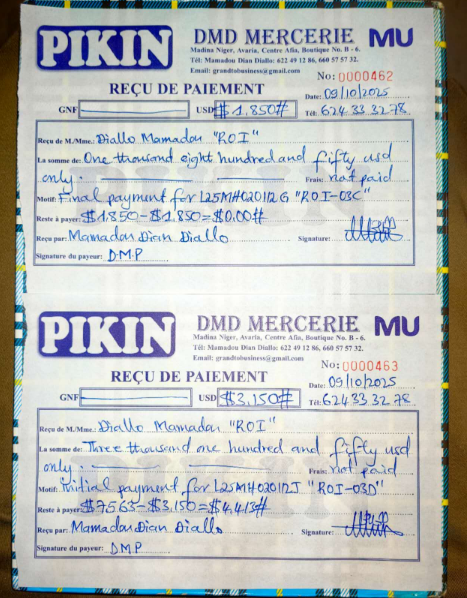 PIKIN
DMD MERCERIE MU
Madina Niger, Avaria, Centre Afia, Boutique No. B - 6.
Tél: Mamadou Dian Diallo: 622 49 12 86, 660 57 57 32.
Email: grandtobusiness@gmail.com
No: 0000462
REÇU DE PAIEMENT Date: 09/10/2025
GNF USD $1.850# Tél: 624 33 32 78
Reçu de M./Mme.: Diallo Mamadou "ROI"
La somme de: One thousand eight hundred and fifty usd
only. Frais: not paid
Motif: Final payment for L25MH020112G "ROI-03C"
Reste à payer: $1.850-$1.850=$0.00#
Reçu par: Mamadou Dian Diallo Signature:
Signature du payeur: D.M.P
PIKIN
DMD MERCERIE MU
Madina Niger, Avaria, Centre Afia, Boutique No. B - 6.
Tél: Mamadou Dian Diallo: 622 49 12 86, 660 57 57 32.
Email: grandtobusiness@gmail.com
No: 0000463
REÇU DE PAIEMENT Date: 09/10/2025
GNF USD $3.150# Tél: 624 33 32 78
Reçu de M./Mme.: Diallo Mamadou "ROI"
La somme de: Three thousand one hundred and fifty usd
only. Frais: not paid
Motif: Initial payment for L25MH020112J "ROI-03D"
Reste à payer: $7563-$3.150=$4.413#
Reçu par: Mamadou Dian Diallo Signature:
Signature du payeur: D.M.P